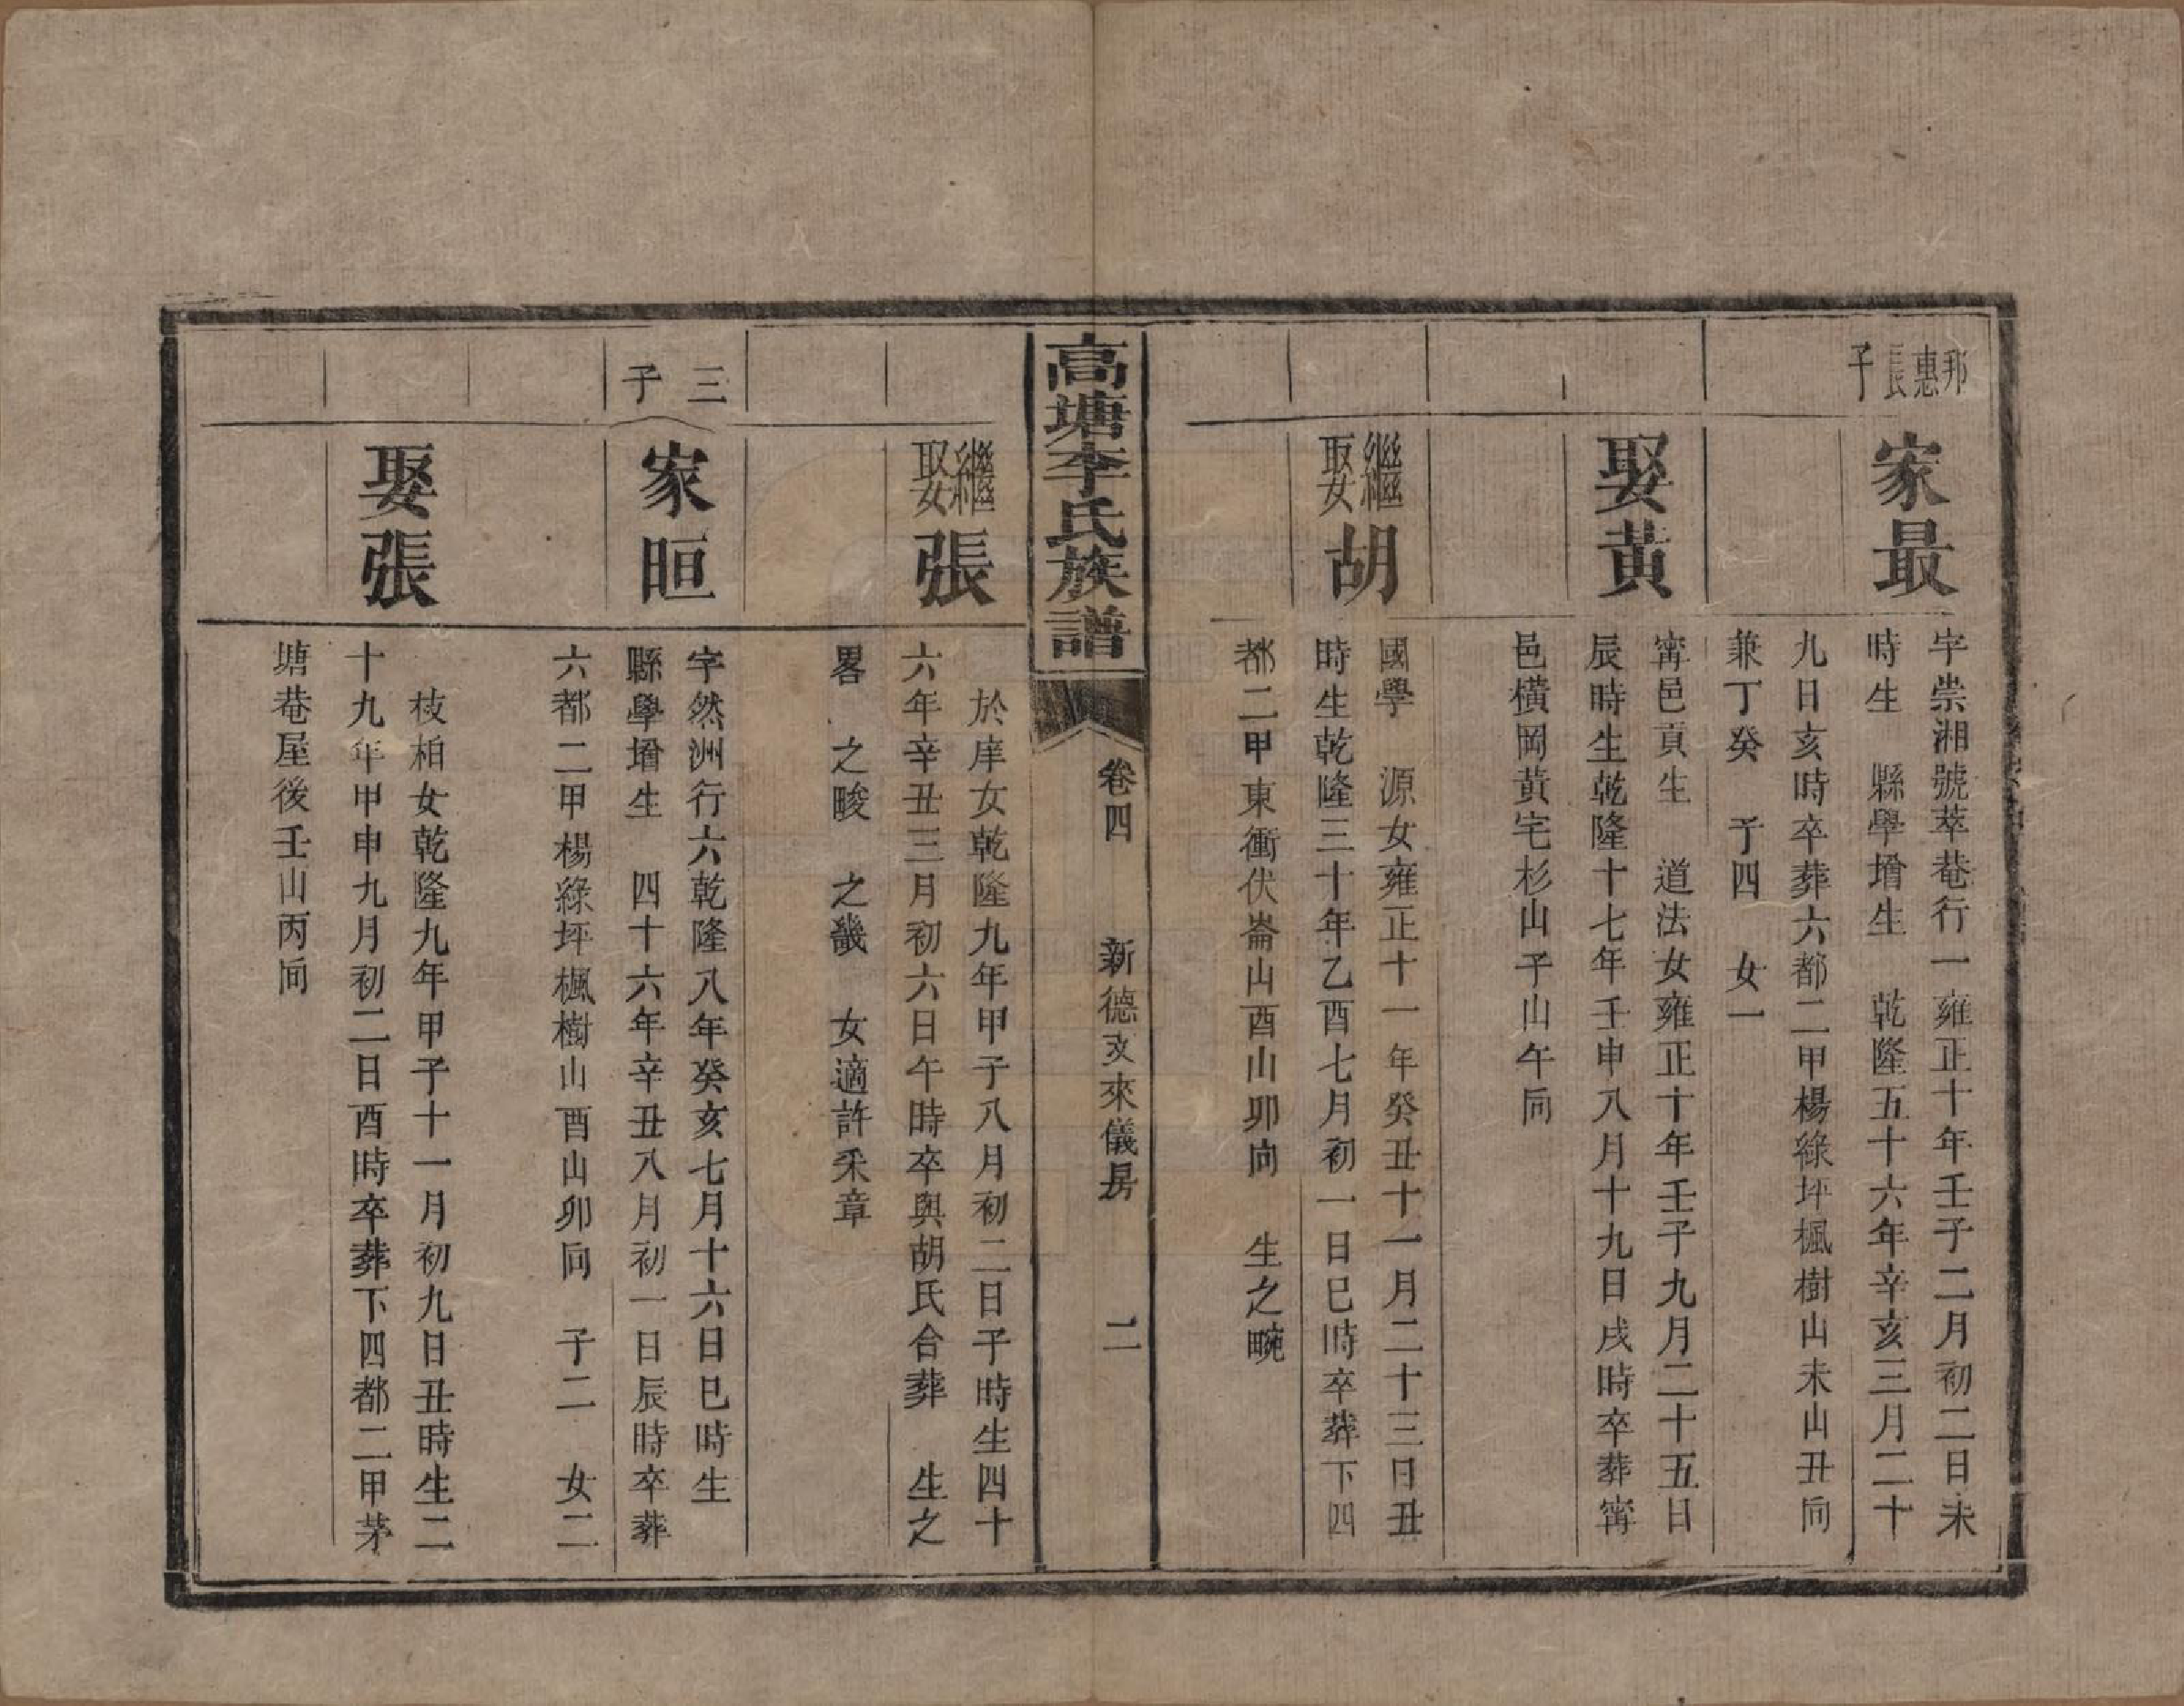 邦惠長子
家最
字崇湘號萃菴行一雍正十年壬子二月初二日未
時生　縣學增生　乾隆五十六年辛亥三月二十
九日亥時卒葬六都二甲楊綠坪楓樹山未山丑向
兼丁癸　子四　女一
娶黃
甯邑貢生　道法女雍正十年壬子九月二十五日
辰時生乾隆十七年壬申八月十九日戌時卒葬甯
邑橫岡黃宅杉山子山午向
繼娶胡
國學　源女雍正十一年癸丑十一月二十三日丑
時生乾隆三十年乙酉七月初一日巳時卒葬下四
都二甲東衝伏崙山酉山卯向　生之畹
高塘李氏族譜
卷四
新德支來儀房
二
繼娶張
於庠女乾隆九年甲子八月初二日子時生四十
六年辛丑三月初六日午時卒與胡氏合葬　生之
畧　之畯　之畿　女適許采章
三子
家晅
字然洲行六乾隆八年癸亥七月十六日巳時生
縣學增生　四十六年辛丑八月初一日辰時卒葬
六都二甲楊綠坪楓樹山酉山卯向　子二　女二
娶張
枝柏女乾隆九年甲子十一月初九日丑時生二
十九年甲申九月初二日酉時卒葬下四都二甲茅
塘菴屋後壬山丙向